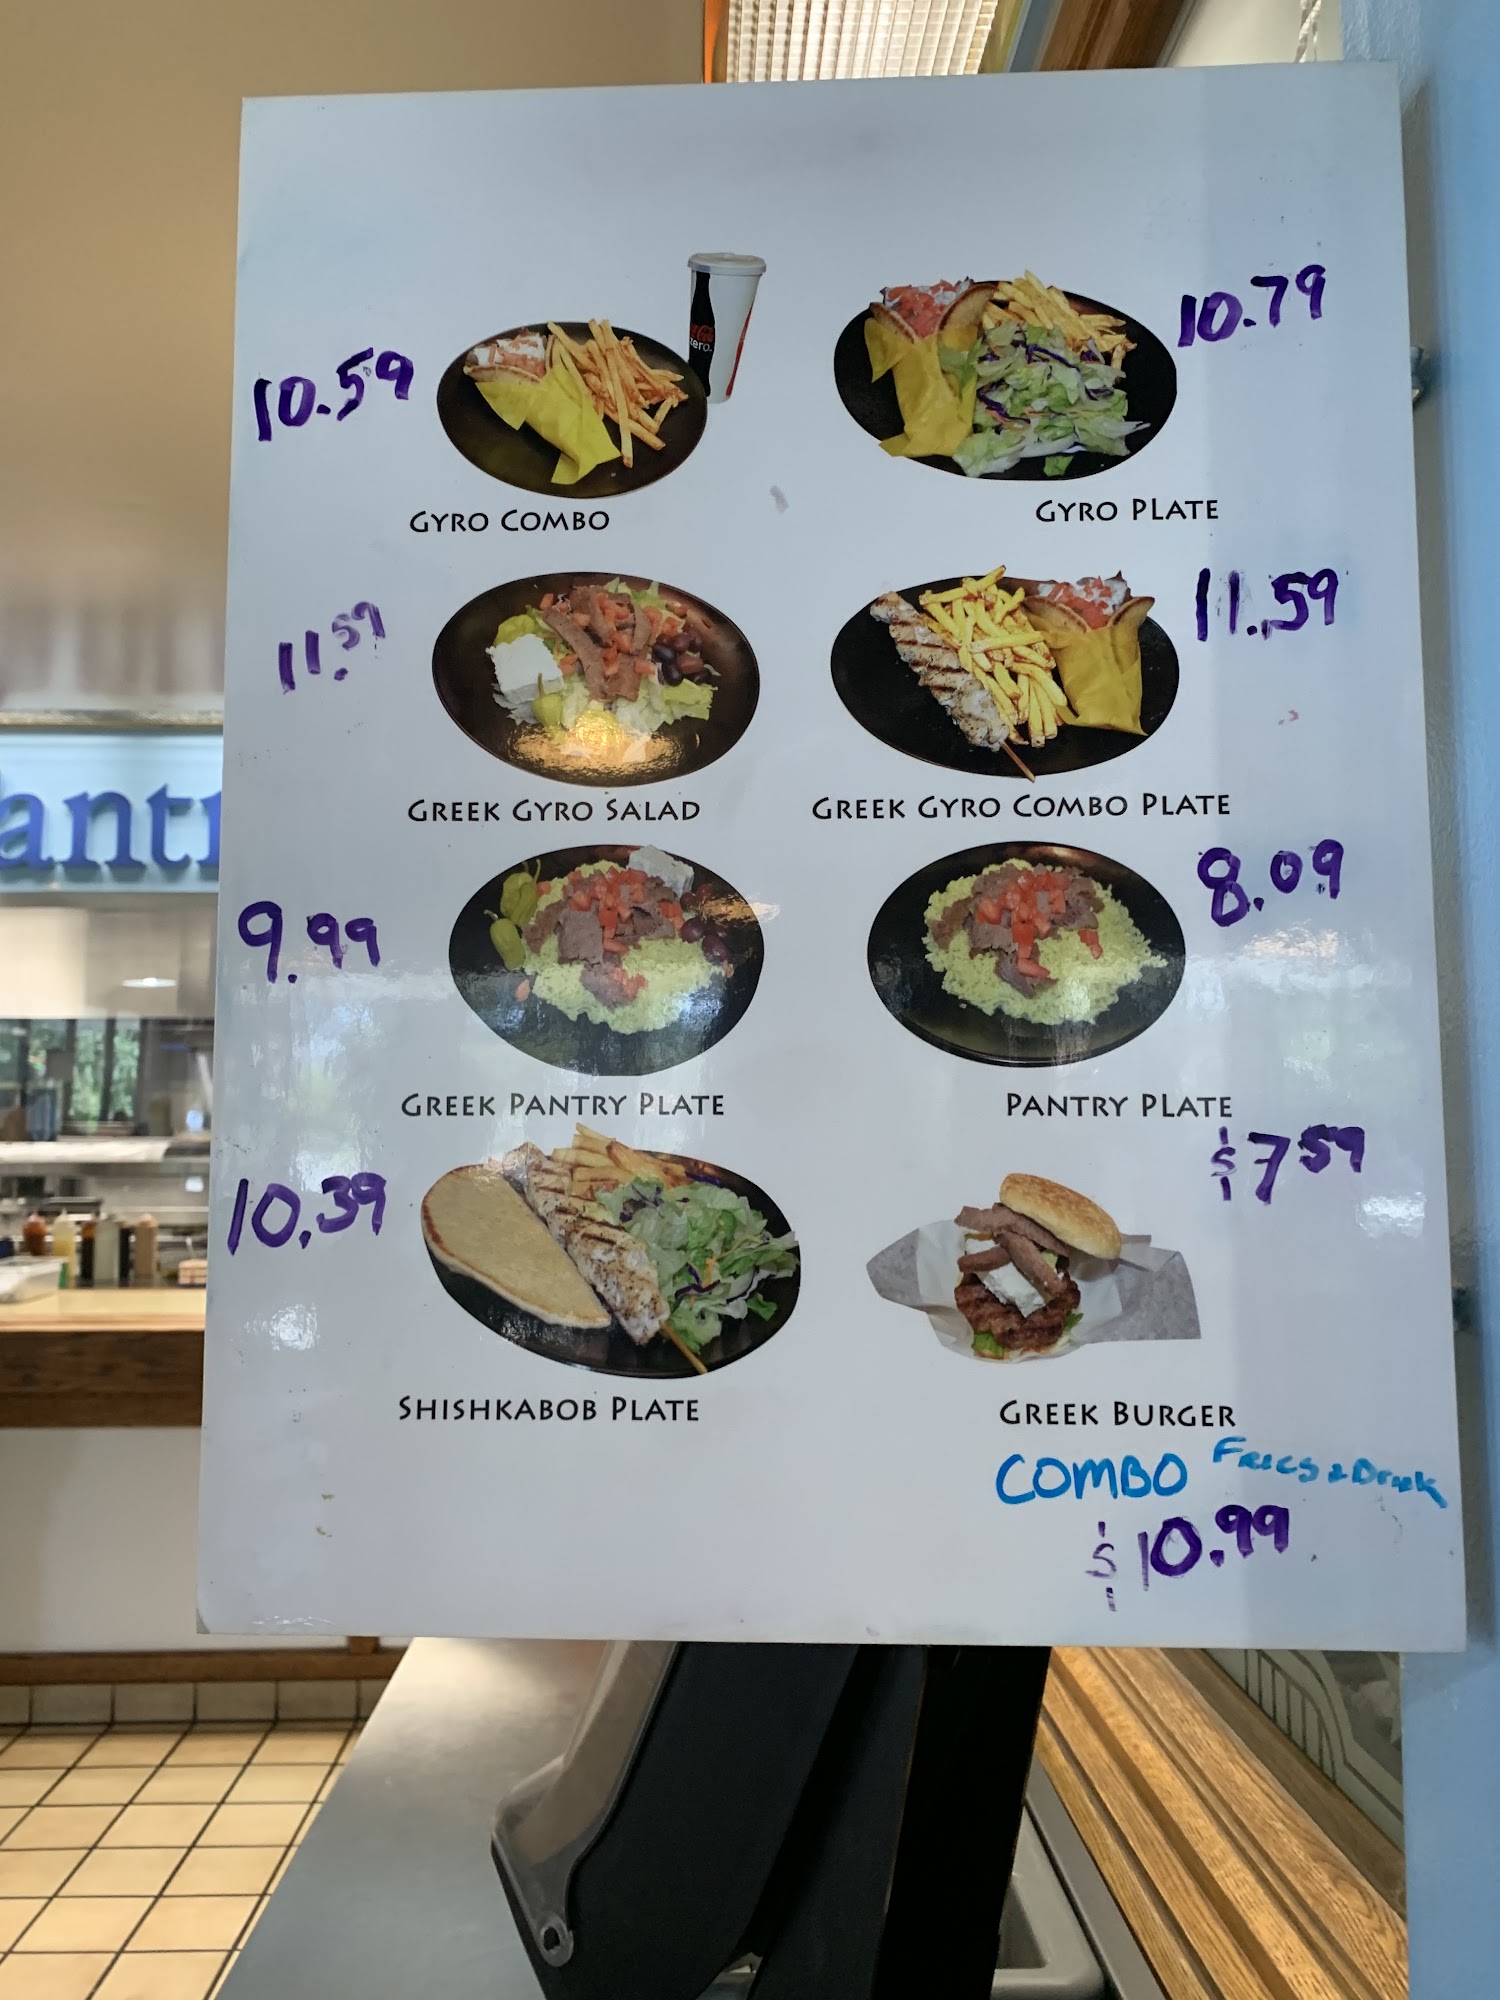 zero
10.59
10.79
GYRO COMBO
GYRO PLATE
11.59
11.59
GREEK GYRO SALAD
GREEK GYRO COMBO PLATE
9.99
8.09
GREEK PANTRY PLATE
PANTRY PLATE
10.39
$7.59
SHISHKABOB PLATE
GREEK BURGER
COMBO Fries & Drink
$10.99
antr